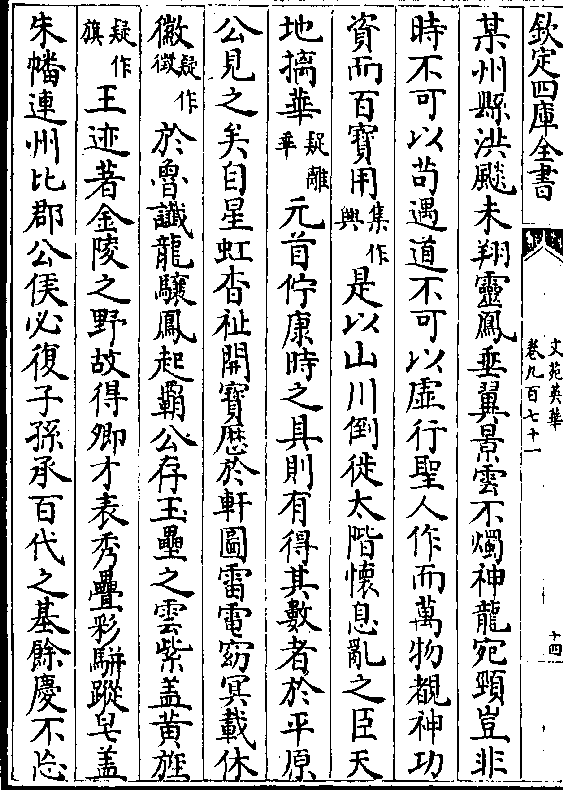 欽定四庫全書
文苑英華
卷九百七十一
十四
某州縣洪飈未翔靈鳳垂翼景雲不燭神龍宛頸豈非
時不可以茍遇道不可以虚行聖人作而萬物覩神功
資而百寶用集作興是以山川倒徙太階懐息亂之臣天
地摛華疑離乖元首佇康時之具則有得其數者於平原
公見之矣自星虹杳祉開寳厯於軒圖雷電窈冥載休
徽疑作徴於魯䜟龍驤鳳起霸公存玉壘之雲紫盖黄旌
疑作旗王迹著金陵之野故得卿才表秀疊彩駢蹤皂盖
朱幡連州比郡公侯必復子孫承百代之基餘慶不忘